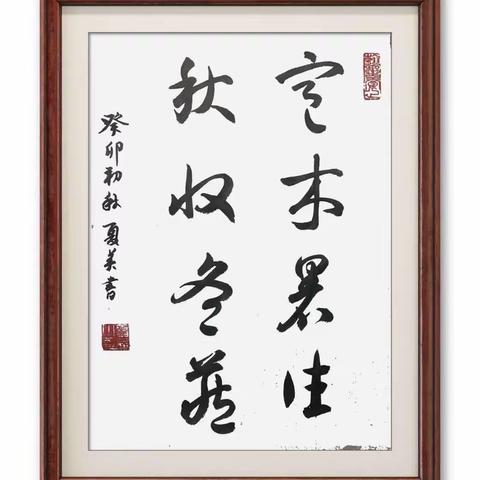 寒来暑往
秋收冬藏
癸卯初秋 夏美書